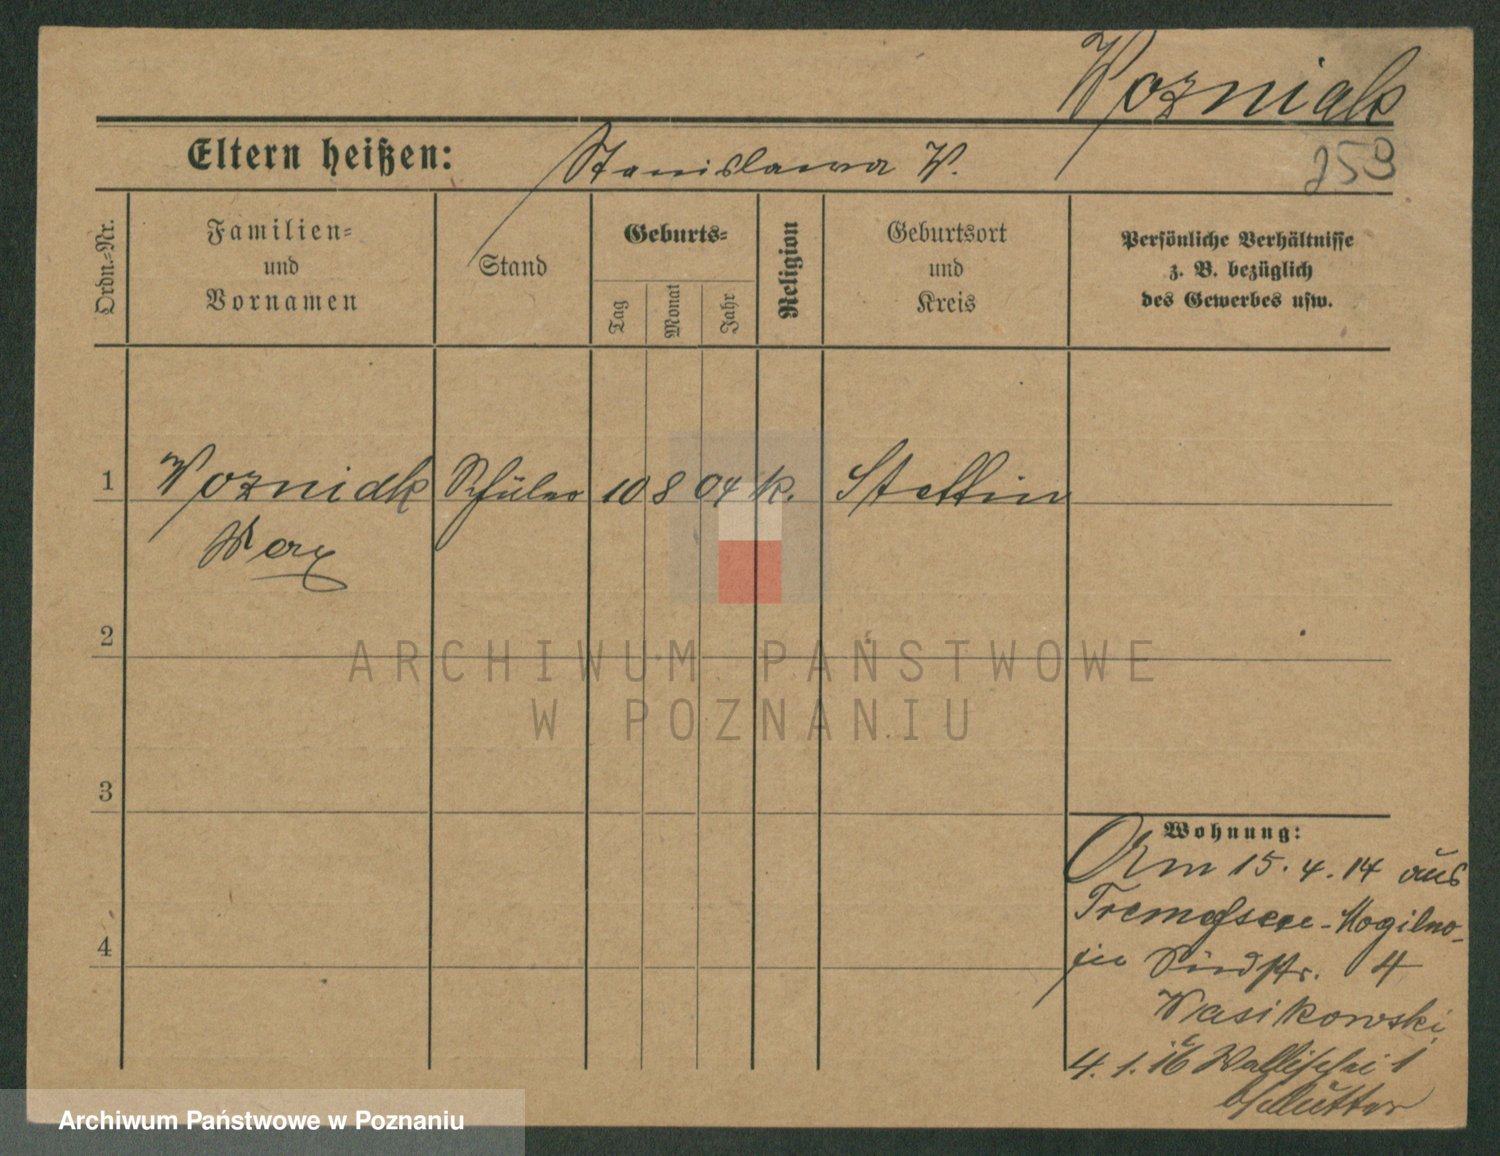 Wozniak
Eltern heißen: Stanislawa W.
259
Ordn.-Nr.
Familien-
und
Vornamen
Stand
Geburts-
Tag
Monat
Jahr
Religion
Geburtsort
und
Kreis
Persönliche Verhältnisse
z. B. bezüglich
des Gewerbes usw.
1 Wozniak Schüler 10 8 04 k. Stettin
2
3
4
Wohnung:
Am 15. 4. 14 aus
Tremessen-Mogilno
Südstr. 4
Wasikowski
4. 1. 16 Wallischei 1
Mutter
ARCHIWUM PAŃSTWOWE
W POZNANIU
Archiwum Państwowe w Poznaniu